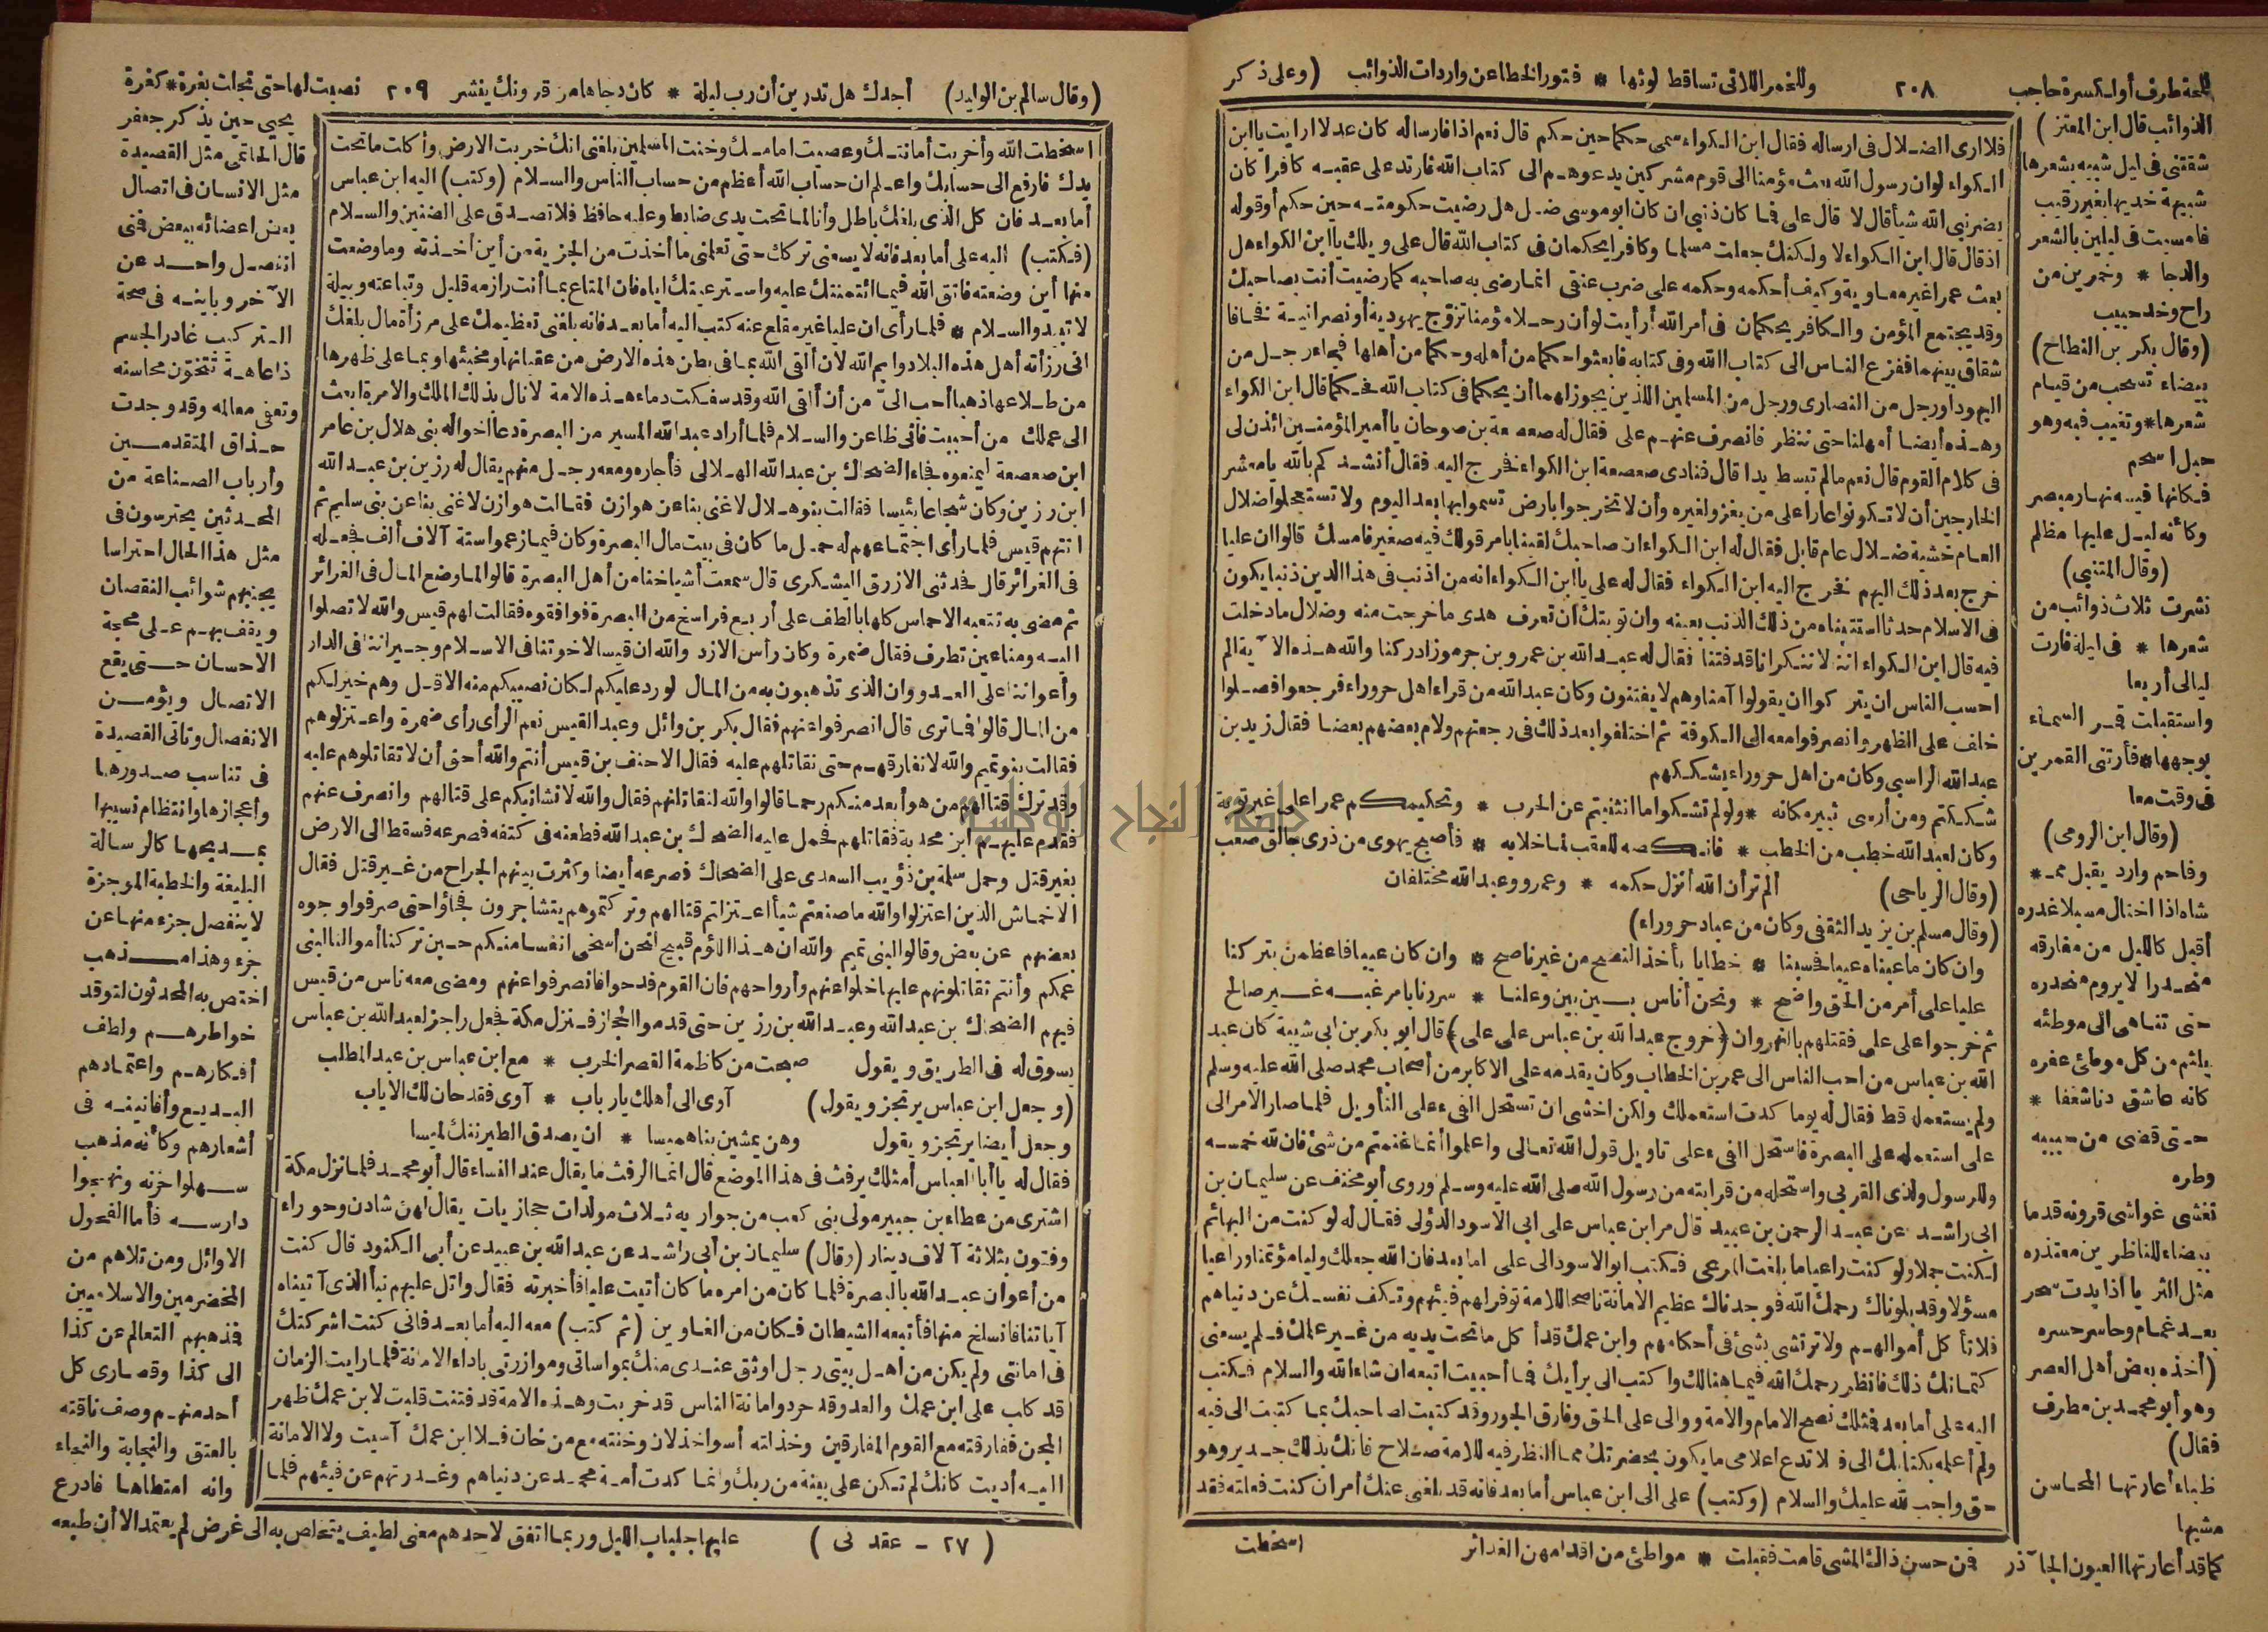 للحة طرف أو بكسرة حاجب ٢٠٨ وللخمر اللاتي تساقط لوثها * فتور الخطا عن واردات الذوائب (وعلى ذكر
الذوائب قال ابن المعتز)
شققتني في ليل شبيه بشعرها
شبيهة خديها بغير رقيب
فأمسيت في ليلين بالشعر
والدجا * وخمرين من
راح وخد حبيب
(وقال بكر بن النطاح)
بيضاء تسحب من قيام
شعرها * وتغيب فيه وهو
جبل اسحم
فكانها فيه نهار مبصر
وكأنه ليل عليها مظلم
(وقال المتنبي)
نشرت ثلاث ذوائب من
شعرها * في ليلة فأرت
ليالي أربعا
واستقبلت قمر السماء
بوجهها * فأرتني القمرين
في وقت معا
(وقال ابن الرومي)
وفاحم وارد يقبل مم *
شاه اذا اختال مسبلا غدره
أقبل كالليل من مفارقه
منحدرا لا يروم منحدره
حتى تناهى الى موطئه
يلثم من كل موطئ عفره
كانه عاشق دنا شغفا *
حتى قضى من حبيبه
وطره
تغشى غواشي قرونه قدما
بيضاء للناظرين مقتدره
مثل الثريا اذا بدت سحر
بعد غمام وحاسر حسره
(أخذه بعض أهل العصر
وهو أبو محمد بن مطرف
فقال)
ظباء أعارتها المحاسن
مشيها
كما قد أعارتها العيون الجآذر فمن حسن ذاك المشي قامت فقبلت * مواطئ من اقدامهن الغدائر
فلا ارى الضلال في ارساله فقال ابن الكواء سمي حكما حين حكم قال نعم اذا فارساله كان عدلا ارايت يا ابن
الكواء لو ان رسول الله بعث مؤمنا الى قوم مشركين يدعوهم الى كتاب الله فارتد على عقبه كافرا كان
يضر نبي الله شيأ قال لا قال علي فما كان ذنبي ان كان ابو موسى ضل هل رضيت حكومته حين حكم أو قوله
اذ قال قال ابن الكواء لا ولكنك جعلت مسلما وكافرا يحكمان في كتاب الله قال علي ويلك يا ابن الكواء هل
بعث عمرا غير معاوية وكيف أحكمه وحكمه على ضرب عنقي انما رضي به صاحبه كما رضيت أنت بصاحبك
وقد يجتمع المؤمن والكافر يحكمان في أمر الله أرأيت لو أن رجلا مؤمنا تزوج يهودية أو نصرانية فخافا
شقاق بينهما ففزع الناس الى كتاب الله وفي كتابه فابعثوا حكما من أهله وحكما من أهلها فجاء رجل من
اليهود أو رجل من النصارى ورجل من المسلمين اللذين يجوز لهما أن يحكما في كتاب الله فحكما قال ابن الكواء
وهذه أيضا أمهلنا حتى ننظر فانصرف عنهم علي فقال له صعصعة بن صوحان يا أمير المؤمنين ائذن لي
في كلام القوم قال نعم ما لم تبسط يدا قال فنادى صعصعة ابن الكواء فخرج اليه فقال أنشدكم بالله يا معشر
الخارجين أن لا تكونوا عارا على من يغزو لغيره وأن لا تخرجوا بارض تسموا بها بعد اليوم ولا تستعجلوا ضلال
العام خشية ضلال عام قابل فقال له ابن الكواء ان صاحبك لقينا بامر قولك فيه صغير فامسك قالوا ان عليا
خرج بعد ذلك اليهم فخرج اليه ابن الكواء فقال له علي يا ابن الكواء انه من اذنب في هذا الدين ذنبا يكون
في الاسلام حدثا استتبناه من ذلك الذنب بعينه وان توبتك أن تعرف هدى ما خرجت منه وضلال ما دخلت
فيه قال ابن الكواء اننا لا ننكر انا قد فتنا فقال له عبد الله بن عمرو بن جرموز ادركنا والله هذه الآية الم
احسب الناس ان يتركوا ان يقولوا آمنا وهم لا يفتنون وكان عبد الله من قراء اهل حروراء فرجعوا فصلوا
خلف علي الظهر وانصرفوا معه الى الكوفة ثم اختلفوا بعد ذلك في رجعتهم ولام بعضهم بعضا فقال زيد بن
عبد الله الراسبي وكان من اهل حروراء يشككهم
شككتم ومن أرسى ثبير مكانه * ولو لم تشكوا ما انثنيتم عن الحرب * وتحكيمكم عمرا على غير توبة
وكان لعبد الله خطب من الخطب * فانكصه للعقب لما خلا به * فأصبح يهوي من ذرى حالق صعب
(وقال الرياحي) ألم تر أن الله أنزل حكمه * وعمرو وعبد الله مختلفان
(وقال مسلم بن يزيد الثقفي وكان من عباد حروراء)
وان كان ما عبناه عيبا فحسبنا * خطايا بأخذ النصح من غير ناصح * وان كان عيبا فاعظمن بتركنا
عليا على أمر من الحق واضح * ونحن أناس بين بين وعلنا * سررنا بامر غبه غير صالح
ثم خرجوا على علي فقتلهم بالنهروان (خروج عبد الله بن عباس على علي) قال أبو بكر بن أبي شيبة كان عبد
الله بن عباس من احب الناس الى عمر بن الخطاب وكان يقدمه على الاكابر من أصحاب محمد صلى الله عليه وسلم
ولم يستعمله قط فقال له يوما كدت استعملك ولكن اخشى ان تستحل الفيء على التأويل فلما صار الامر الى
علي استعمله على البصرة فاستحل الفيء على تاويل قول الله تعالى واعلموا أنما غنمتم من شئ فان لله خمسه
وللرسول ولذي القربى واستحله من قرابته من رسول الله صلى الله عليه وسلم وروى أبو مخنف عن سليمان بن
ابي راشد عن عبد الرحمن بن عبيد قال مر ابن عباس على ابي الاسود الدؤلي فقال له لو كنت من البهائم
لكنت جملا ولو كنت راعيا ما بلغت المرعى فكتب ابو الاسود الى علي اما بعد فان الله جعلك وليا مؤتمنا وراعيا
مسؤلا وقد بلوناك رحمك الله فوجدناك عظيم الامانة ناصحا للامة توفر لهم فيئهم وتكف نفسك عن دنياهم
فلا تأكل أموالهم ولا ترتشي بشئ في أحكامهم وابن عمك قد أكل ما تحت يديه من غير علمك فلم يسعني
كتمانك ذلك فانظر رحمك الله فيما هنالك واكتب الى برأيك فما أحببت اتبعه ان شاء الله والسلام فكتب
اليه علي أما بعد فمثلك نصح الامام والامة ووالى على الحق وفارق الجور وقد كتبت لصاحبك بما كتبت الى فيه
ولم أعلمه بكتابك الى فلا تدع اعلامي ما يكون بحضرتك مما النظر فيه للامة صلاح فانك بذلك جدير وهو
حق واجب لله عليك والسلام (وكتب) علي الى ابن عباس أما بعد فانه قد بلغني عنك أمر ان كنت فعلته فقد
اسخطت
(وقال سالم بن الوليد) أجدك هل تدرين أن رب ليلة * كان دجاها من قرونك ينشر ٢٠٩ نصبت لها حتى تجلت بغرة * كغرة
اسخطت الله وأخربت أمانتك وعصيت امامك وخنت المسلمين بلغني انك خربت الارض وأكلت ما تحت
يدك فارفع الى حسابك واعلم ان حساب الله أعظم من حساب الناس والسلام (وكتب) اليه ابن عباس
أما بعد فان كل الذي بلغك باطل وأنا لما تحت يدي ضابط وعليه حافظ فلا تصدق على الضنين والسلام
(فكتب) اليه علي أما بعد فانه لا يسعني تركك حتى تعلمني ما أخذت من الجزية من أين أخذته وما وضعت
منها أين وضعته فاتق الله فيما ائتمنتك عليه واسترعيتك اياه فان المتاع بما أنت رازمه قليل وتباعته وبيلة
لا تبيد والسلام * فلما رأى ان عليا غير مقلع عنه كتب اليه أما بعد فانه بلغني تعظيمك على مرزأة مال بلغك
اني رزأته أهل هذه البلاد وايم الله لان ألقى الله بما في بطن هذه الارض من عقيانها ومخبئها وبما على ظهرها
من طلاعها ذهبا أحب الى من أن ألقى الله وقد سفكت دماء هذه الامة لانال بذلك الملك والامرة ابعث
الى عملك من أحببت فاني ظاعن والسلام فلما أراد عبد الله المسير من البصرة دعا أخواله بني هلال بن عامر
ابن صعصعة ليمنعوه فجاء الضحاك بن عبد الله الهلالي فأجاره ومعه رجل منهم يقال له رزين بن عبد الله
ابن رزين وكان شجاعا بئيسا فقالت بنو هلال لا غنى بنا عن هوازن فقالت هوازن لا غنى بنا عن بني سليم ثم
اتتهم قيس فلما رأى اجتماعهم له حمل ما كان في بيت مال البصرة وكان فيما زعموا ستة آلاف ألف فجعله
في الغرائر قال فحدثني الازرق اليشكري قال سمعت أشياخنا من أهل البصرة قالوا لما وضع المال في الغرائر
ثم مضى به تتعبه الاحماس كلها بالطف على أربع فراسخ من البصرة فوافقوه فقالت لهم قيس والله لا تصلوا
اليه ومنا عين تطرف فقال ضمرة وكان رأس الازد والله ان قيسا لاخوتنا في الاسلام وجيراننا في الدار
وأعواننا على العدو وان الذي تذهبون به من المال لو رد عليكم لكان نصيبكم منه الاقل وهم خير لكم
من المال قالوا فما ترى قال انصرفوا عنهم فقال بكر بن وائل وعبد القيس نعم الرأى رأى ضمرة واعتزلوهم
فقالت بنو تميم والله لا نفارقهم حتى نقاتلهم عليه فقال الاحنف بن قيس أنتم والله أحق أن لا تقاتلوهم عليه
وقد ترك قتالهم من هو أبعد منكم رحما قالوا والله لنقاتلنهم فقال والله لا نشايكم على قتالهم وانصرف عنهم
فقدم عليهم ابن مجدبة فقاتلهم فحمل عليه الضحاك بن عبد الله فطعنه في كتفه فصرعه فسقط الى الارض
بغير قتل وحمل سلمة بن ذؤيب السعدي على الضحاك فصرعه أيضا وكثرت بينهم الجراح من غير قتل فقال
الاخماس الذين اعتزلوا والله ما صنعتم شيأ اعتزلتم قتالهم وتركتموهم يتشاجرون فجاؤا حتى صرفوا وجوه
بعضهم عن بعض وقالوا لبني تميم والله ان هذا اللؤم قبيح لنحن أسخى انفسا منكم حين تركنا أموالنا لبني
عمكم وأنتم تقاتلونهم عليها خلوا عنهم وأرواحهم فان القوم فدحوا فانصرفوا عنهم ومضى معه ناس من قيس
فيهم الضحاك بن عبد الله وعبد الله بن رزين حتى قدموا الحجاز فنزل مكة فجعل راجز لعبد الله بن عباس
يسوق له في الطريق ويقول صبحت من كاظمة القصر الخرب * مع ابن عباس بن عبد المطلب
(وجعل ابن عباس يرتجز ويقول) آوى الى أهلك يا رباب * آوى فقد حان لك الاياب
وجعل أيضا يرتجز ويقول وهن يمشين بنا هميسا * ان يصدق الطير ننك لميسا
فقال له يا أبا العباس أمثلك يرفث في هذا الموضع قال انما الرفث ما يقال عند النساء قال أبو محمد فلما نزل مكة
اشترى من عطاء بن جبير مولى بني كعب من جواريه ثلاث مولدات حجازيات يقال لهن شادن وحوراء
وفتون بثلاثة آلاف دينار (وقال) سليمان بن أبي راشد عن عبد الله بن عبيد عن أبي الكنود قال كنت
من أعوان عبد الله بالبصرة فلما كان من امره ما كان أتيت عليا فأخبرته فقال واتل عليهم نبأ الذي آتيناه
آياتنا فانسلخ منها فأتبعه الشيطان فكان من الغاوين (ثم كتب) معه اليه أما بعد فاني كنت اشركتك
في امانتي ولم يكن من اهل بيتي رجل اوثق عندي منك بمواساتي وموازرتي باداء الامانة فلما رايت الزمان
قد كلب على ابن عمك والعدو قد حرد وامانة الناس قد خربت وهذه الامة قد فتنت قلبت لابن عمك ظهر
المجن ففارقته مع القوم المفارقين وخذلته أسوأ خذلان وخنته مع من خان فلا ابن عمك آسيت ولا الامانة
اليه أديت كانك لم تكن على بينة من ربك وانما كدت أمة محمد عن دنياهم وغدرتهم عن فيئهم فلما
يحيى حين يذكر جعفر
قال الحاتمي مثل القصيدة
مثل الانسان في اتصال
بعض اعضائه ببعض فمتى
انفصل واحد عن
الآخر وباينه في صحة
التركيب غادر الجسم
ذا عاهة تتخون محاسنه
وتعفى معالمه وقد وجدت
حذاق المتقدمين
وأرباب الصناعة من
المحدثين يحترسون في
مثل هذا الحال احتراسا
يجنبهم شوائب النقصان
ويقف بهم على محجة
الاحسان حتى يقع
الاتصال ويؤمن
الانفصال وتاتي القصيدة
في تناسب صدورها
وأعجازها وانتظام نسيبها
بمديحها كالرسالة
البليغة والخطبة الموجزة
لا ينفصل جزء منها عن
جزء وهذا مذهب
اختص به المحدثون لتوقد
خواطرهم ولطف
أفكارهم واعتمادهم
البديع وأفانينه في
أشعارهم وكأنه مذهب
سهلوا حزنه ونهجوا
دارسه فأما الفحول
الاوائل ومن تلاهم من
المخضرمين والاسلاميين
فمذهبهم التعالم عن كذا
الى كذا وقصارى كل
أحد منهم وصف ناقته
بالعتق والنجابة والنجاء
وانه امتطاها فادرع
عليها جلباب الليل وربما اتفق لاحدهم معنى لطيف يتخلص به الى غرض لم يعتمد الا أن طبعه
(٢٧ - عقد ني)
جامعة النجاح الوطنية